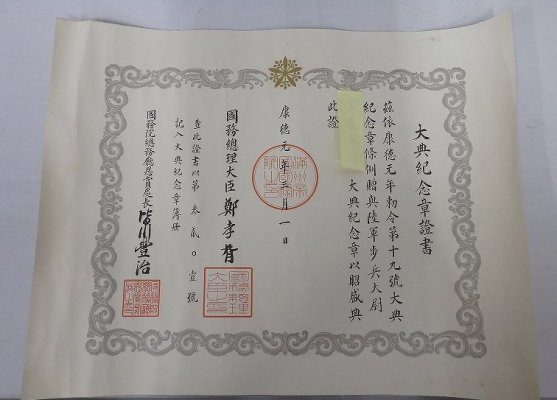 大典紀念章證書
茲依康德元年勅令第十九號大典
紀念章條例贈與陸軍步兵大尉
大典紀念章以昭盛典
此證
康德元年三月一日
國務總理大臣 鄭孝胥
查此證書以第叁貳〇壹號
記入大典紀念章簿冊
國務院總務廳恩賞處長 皆川豐治